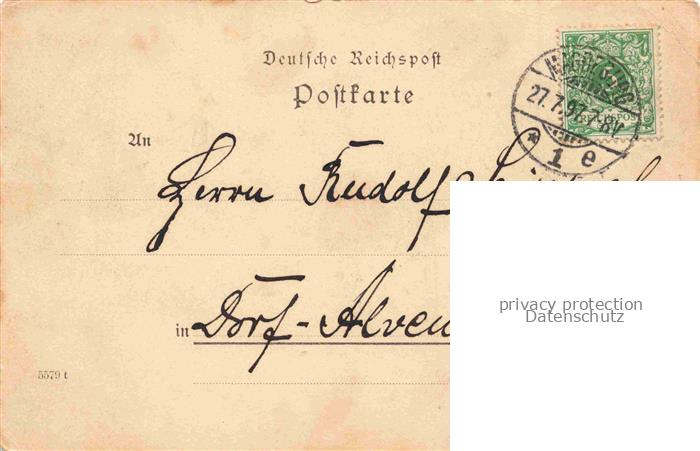 Deutsche Reichspost
Postkarte
MAGDEBURG
27.7.97. 7-8V.
* 1 e
REICHSPOST
An
Herrn Rudolf
in Dorf-Alven
privacy protection
Datenschutz
5579 t